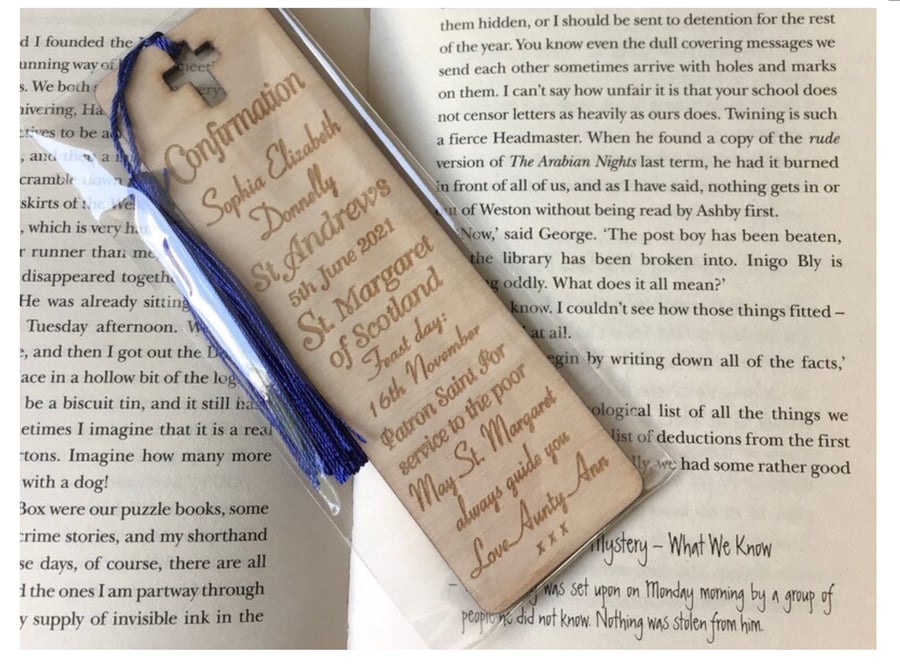 d I founded the
unning way of
s. We both
nivering, Ha
tives to be a
, and then a
cramble down
skirts of the We
, which is very ha
r runner than me
disappeared togeth
He was already sitting
Tuesday afternoon. W
e, and then I got out the D
ace in a hollow bit of the log
be a biscuit tin, and it still has
etimes I imagine that it is a real
tons. Imagine how many more
with a dog!
Box were our puzzle books, some
crime stories, and my shorthand
se days, of course, there are all
d the ones I am partway through
y supply of invisible ink in the
meet
ery
Confirmation
Sophia Elizabeth
Donnelly
St Andrew's
5th June 2021
St. Margaret
of Scotland
Feast day:
16th November
Patron Saint For
service to the poor
May St. Margaret
always guide you
Love Aunty Ann
x x x
them hidden, or I should be sent to detention for the rest
of the year. You know even the dull covering messages we
send each other sometimes arrive with holes and marks
on them. I can't say how unfair it is that your school does
not censor letters as heavily as ours does. Twining is such
a fierce Headmaster. When he found a copy of the rude
version of The Arabian Nights last term, he had it burned
in front of all of us, and as I have said, nothing gets in or
out of Weston without being read by Ashby first.
Now,' said George. 'The post boy has been beaten,
the library has been broken into. Inigo Bly is
g oddly. What does it all mean?'
know. I couldn't see how those things fitted –
at all.
egin by writing down all of the facts,'
ological list of all the things we
list of deductions from the first
lly, we had some rather good
Mystery – What We Know
– was set upon on Monday morning by a group of
people he did not know. Nothing was stolen from him.